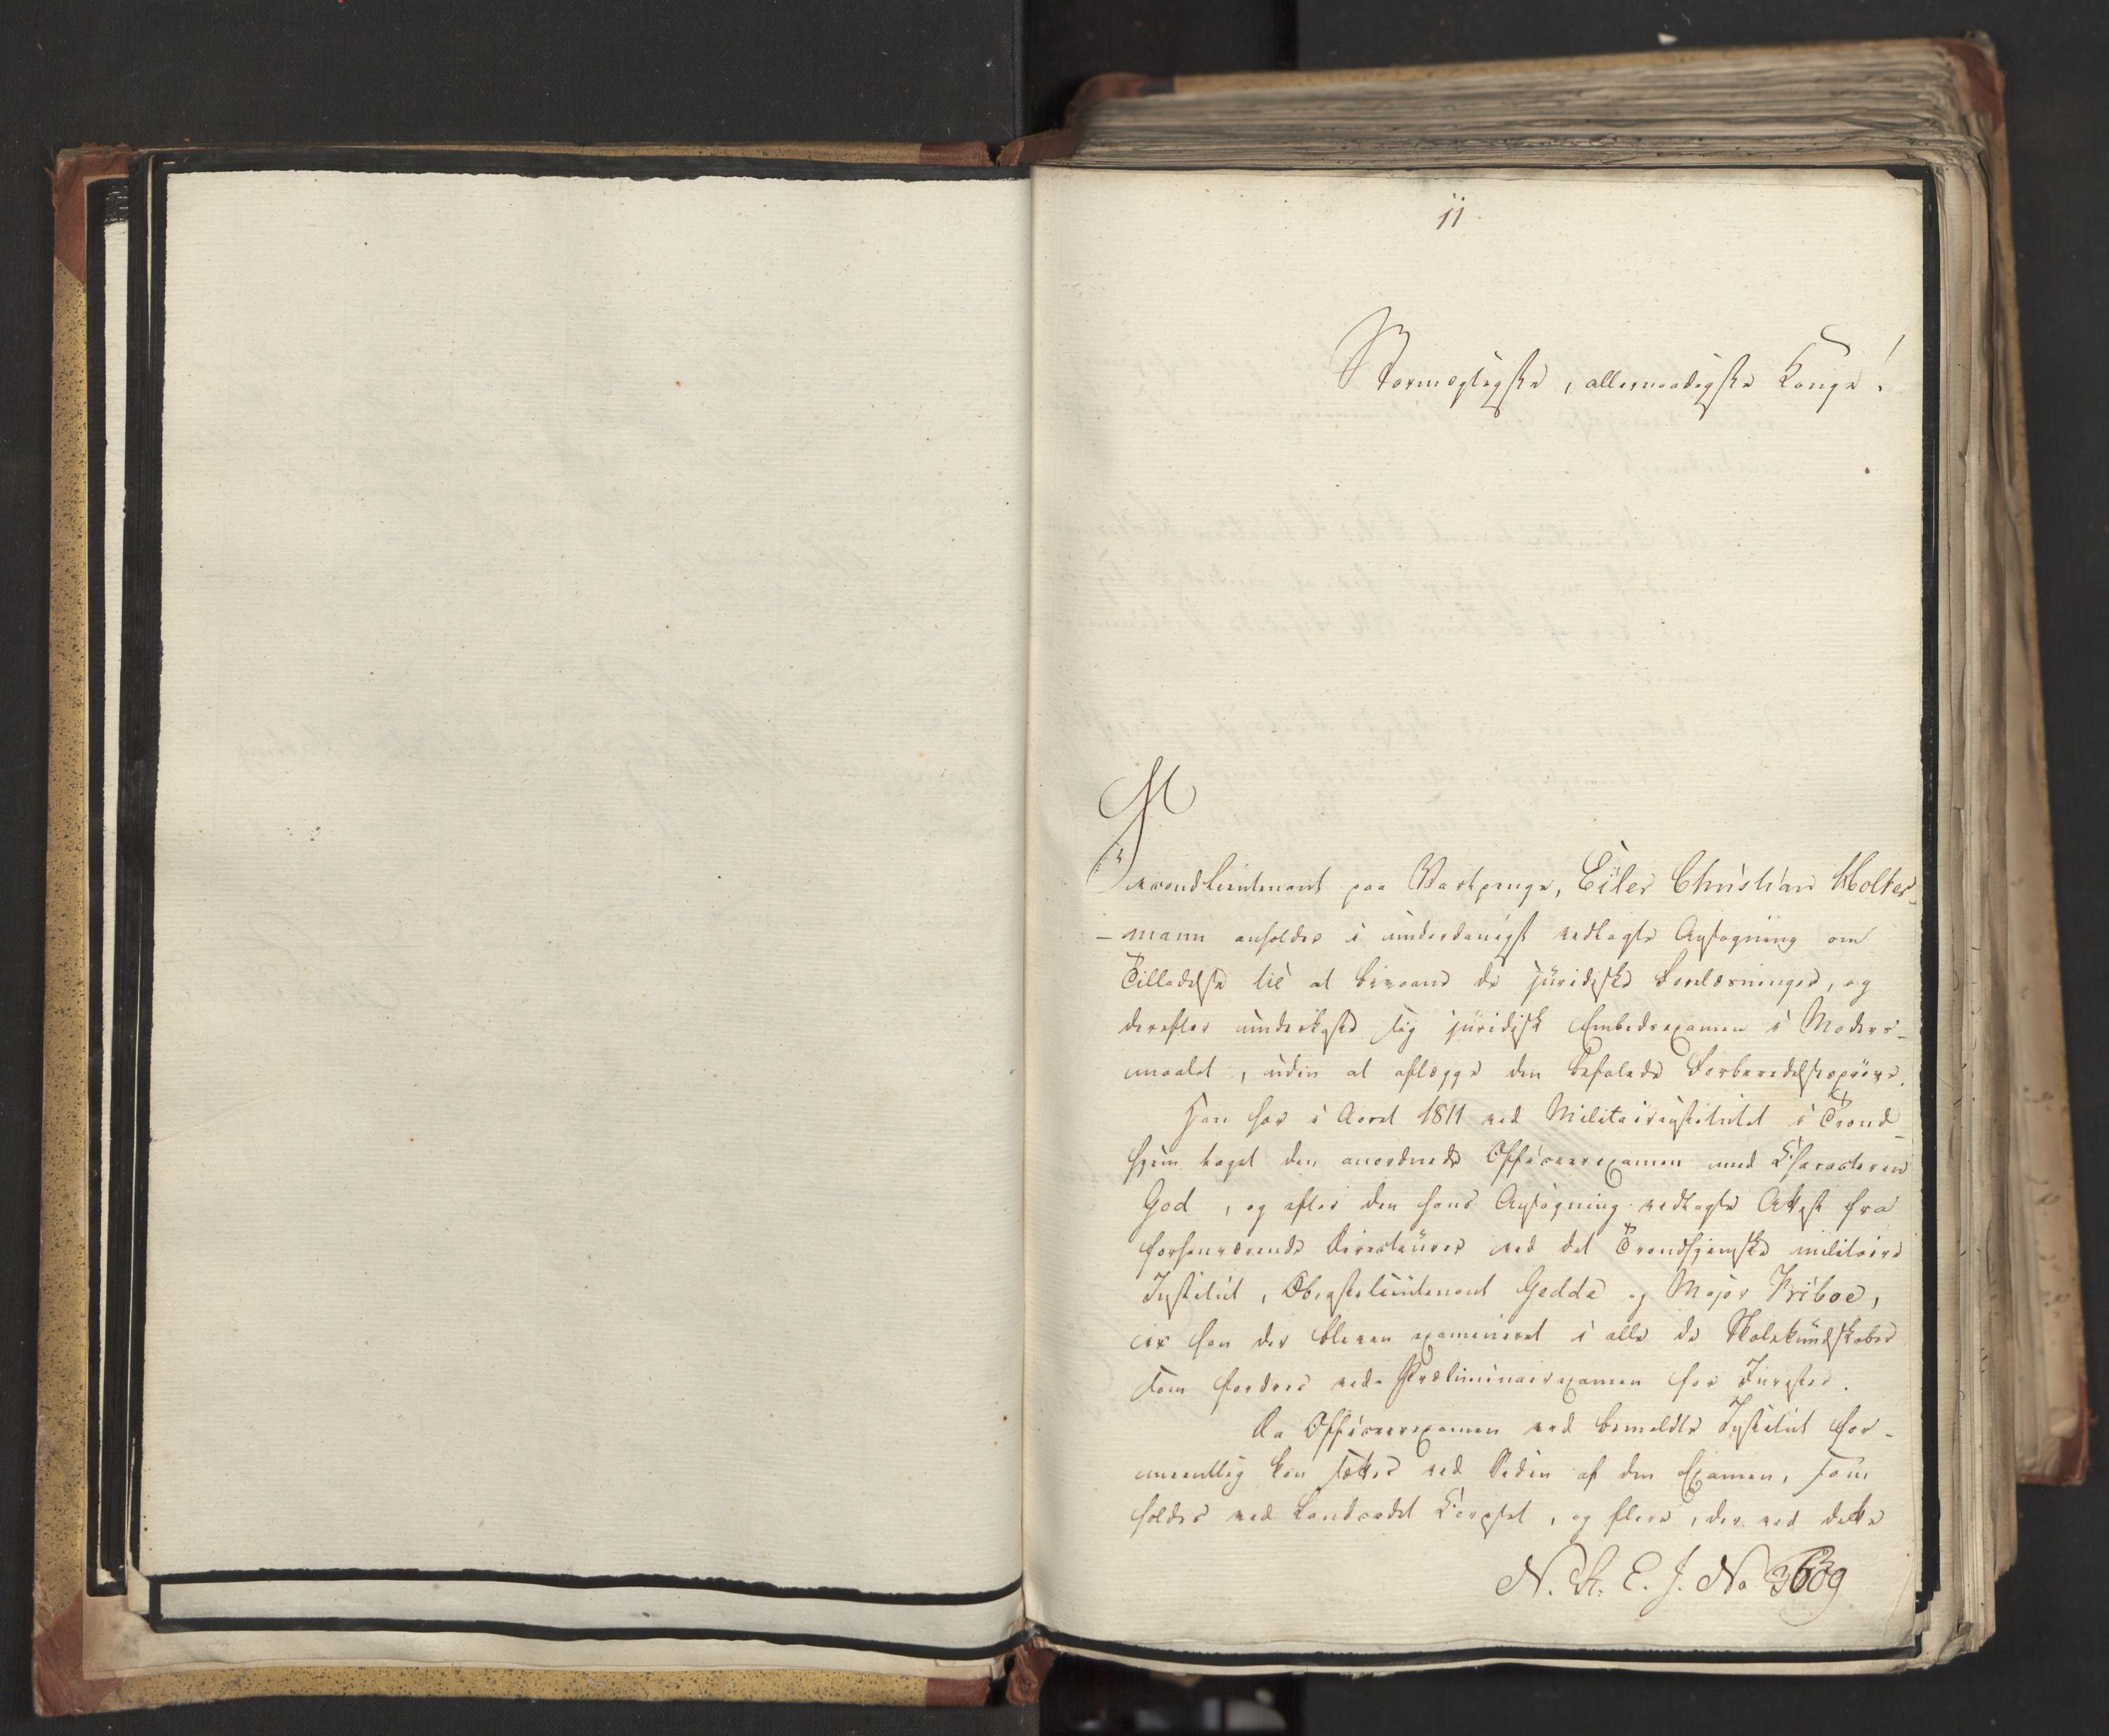 11
Stormægtigste, allernaadigste Konge!
Secondlieutenant paa Vartpenge, Eiler Christian Holter-
-mann anholder i underdanigst vedlagte Ansøgning om
Tilladelse til at bivaane de juridiske Forelæsninger, og
derefter underkaste sig juridisk Embedsexamen i Moders-
maalet, uden at aflægge den befalede Forberedelsesprøve.
Han har i Aaret 1811 ved Militairinstitutet i Trond-
hjem taget den anordnede Officeerexamen med Characteren
God, og efter den hans Ansøgning vedlagte Attest fra
forhenværende Directeurer ved det Trondhjemske militaire
Institut, Oberstelieutenant Gedde og Major Kriboe,
er han der bleven examineret i alle de Skolekundskaber
som fordres ved Præliminairexamen for Jurister.
Da Officeerexamen ved bemeldte Institut for-
meentlig kan sættes ved Siden af den Examen, som
holdes ved Landcadet Corpset, og flere, der ved dette
N. R. E. J. No 3609